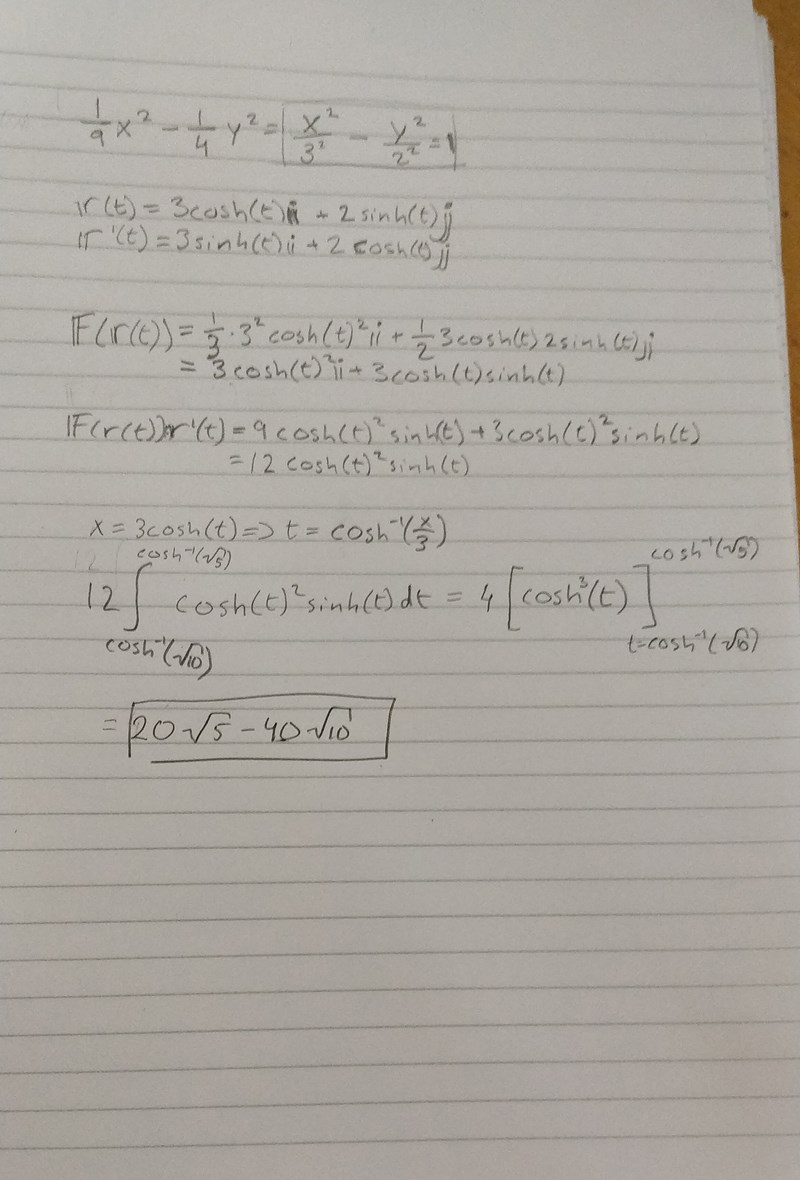 1/9 x² - 1/4 y² = x²/3² - y²/2² = 1
r(t) = 3cosh(t)i + 2 sinh(t)j
r'(t) = 3 sinh(t)i + 2 cosh(t)j
F(r(t)) = 1/3 · 3² cosh(t)² i + 1/2 3cosh(t) 2sinh(t)j
= 3 cosh(t)² i + 3cosh(t)sinh(t)
F(r(t))r'(t) = 9 cosh(t)² sinh(t) + 3cosh(t)² sinh(t)
= 12 cosh(t)² sinh(t)
x = 3cosh(t) => t = cosh⁻¹(x/3)
12 ∫ cosh⁻¹(√10) cosh⁻¹(√5) cosh(t)² sinh(t) dt = 4 [cosh³(t)] t=cosh⁻¹(√10) cosh⁻¹(√5)
= 20√5 - 40√10